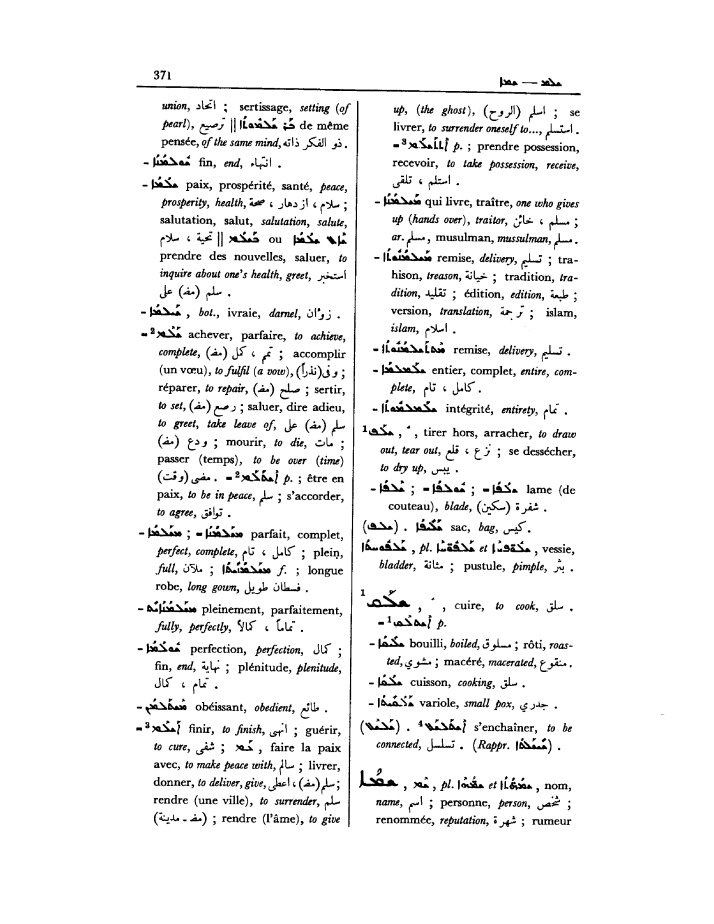 371
ܫܠܡ — ܫܡܐ
union, اتحاد ; sertissage, setting (of
pearl), ترصيع || ܒܪ ܫܠܡܘܬܐ de même
pensée, of the same mind, ذو الفكر ذاته .
- ܫܘܠܡܢܐ fin, end, انتهاء .
- ܫܠܡܐ paix, prospérité, santé, peace,
prosperity, health, سلام ، ازدهار ، صحة ;
salutation, salut, salutation, salute,
تحية ، سلام || ܫܐܠ ܫܠܡܐ ou ܒܫܠܡ
prendre des nouvelles, saluer, to
inquire about one's health, greet, استخبر
سلم (مف) على .
- ܫܝܠܡܐ , bot., ivraie, darnel, زوان .
-²ܫܠܡ achever, parfaire, to achieve,
complete, تمم ، كمل (مف) ; accomplir
(un vœu), to fulfil (a vow), وفى (نذراً) ;
réparer, to repair, صلح (مف) ; sertir,
to set, رصع (مف) ; saluer, dire adieu,
to greet, take leave of, سلم (مف) على
ودع (مف) ; mourir, to die, مات ;
passer (temps), to be over (time)
مضى (وقت) . -²ܐܫܬܠܡ p. ; être en
paix, to be in peace, سلم ; s'accorder,
to agree, توافق .
- ܡܫܠܡܢܐ - ; ܡܫܠܡܐ parfait, complet,
perfect, complete, كامل ، تام ; plein,
full, ملآن ; ܡܫܠܡܢܝܬܐ f. ; longue
robe, long gown, فسطان طويل .
- ܡܫܠܡܢܐܝܬ pleinement, parfaitement,
fully, perfectly, تماماً ، كمالاً .
- ܫܘܠܡܐ perfection, perfection, كمال ;
fin, end, نهاية ; plénitude, plenitude,
تمام ، كمال .
- obéissant, obedient, طائع .
-³ܐܫܠܡ finir, to finish, انهى ; guérir,
to cure, شفى ; ܥܡ , faire la paix
avec, to make peace with, سالم ; livrer,
donner, to deliver, give, سلم (مف) ، اعطى ;
rendre (une ville), to surrender, سلم
(مف - مدينة) ; rendre (l'âme), to give
up, (the ghost), اسلم (الروح) ; se
livrer, to surrender oneself to..., استسلم .
-³ܐܬܬܫܠܡ p. ; prendre possession,
recevoir, to take possession, receive,
استلم ، تلقى .
- ܡܫܠܡܢܐ qui livre, traître, one who gives
up (hands over), traitor, مسلم ، خائن ;
ar. مسلم , musulman, mussulman, مسلم .
- ܡܫܠܡܢܘܬܐ remise, delivery, تسليم ; tra-
hison, treason, خيانة ; tradition, tra-
dition, تقليد ; édition, edition, طبعة ;
version, translation, ترجمة ; islam,
islam, اسلام .
- ܡܫܬܠܡܢܘܬܐ remise, delivery, تسليم .
- ܡܫܡܠܝܐ entier, complet, entire, com-
plete, كامل ، تام .
- intégrité, entirety, تمام .
¹ܫܠܦ , ܳ , tirer hors, arracher, to draw
out, tear out, نزع ، قلع ; se dessécher,
to dry up, يبس .
- ܫܠܦܐ - ; ܫܘܠܦܐ - ; ܫܠܦܐ lame (de
couteau), blade, شفرة (سكين) .
(ܫܠܦ) . ܫܠܝܦܐ sac, bag, كيس .
ܫܠܦܘܚܬܐ , pl. et , vessie,
bladder, مثانة ; pustule, pimple, بثر .
¹ܫܠܩ , ܳ , cuire, to cook, سلق .
-¹ܐܫܬܠܩ p.
- ܫܠܝܩܐ bouilli, boiled, مسلوق ; rôti, roas-
ted, مشوي ; macéré, macerated, منقوع .
- ܫܠܩܐ cuisson, cooking, سلق .
- variole, small pox, جدري .
. ⁴ s'enchaîner, to be
connected, تسلسل . (Rappr. ) .
ܫܡܐ , ܫܡ , pl. ܫܡܗܐ et ܫܡܗܬܐ , nom,
name, اسم ; personne, person, شخص ;
renommée, reputation, شهرة ; rumeur